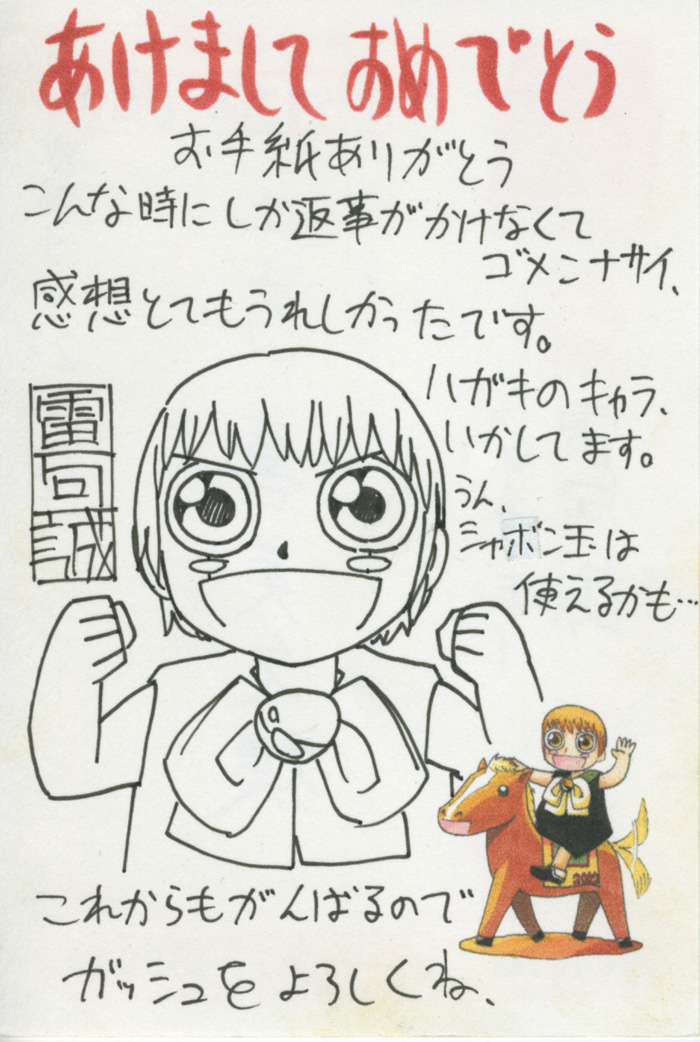 あけましておめでとう
お手紙ありがとう
こんな時にしか返事がかけなくて
ゴメンナサイ、
感想とてもうれしかったです。
ハガキのキャラ、
いかしてます。
うん、
シャボン玉は
使えるかも…
雷句誠
2002
これからもがんばるので
ガッシュをよろしくね、